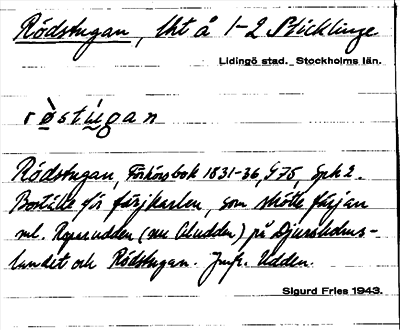 Rödstugan, lht å 1-2 Sticklinge
Lidingö stad. Stockholms län.
rö̀stúgan
Rödstugan, Förhörsbok 1831-36, s. 75, Spk 2.
Boställe för färjkarlen, som skötte färjan
ml. Roparudden (nu Ekudden) på Djursholms-
landet och Rödstugan. Jmfr. Udden.
Sigurd Fries 1943.